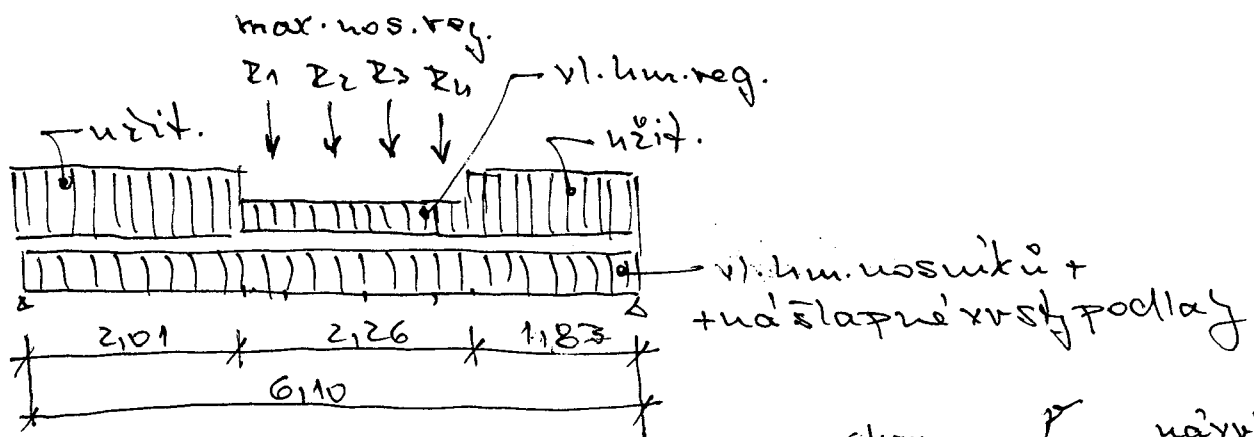 max. nos. reg.
R1 R2 R3 R4
vl. hm. reg.
užit.
užit.
vl. hm. nosníků +
+ nášlapné vrsty podlay
2,01 2,26 1,83
6,10